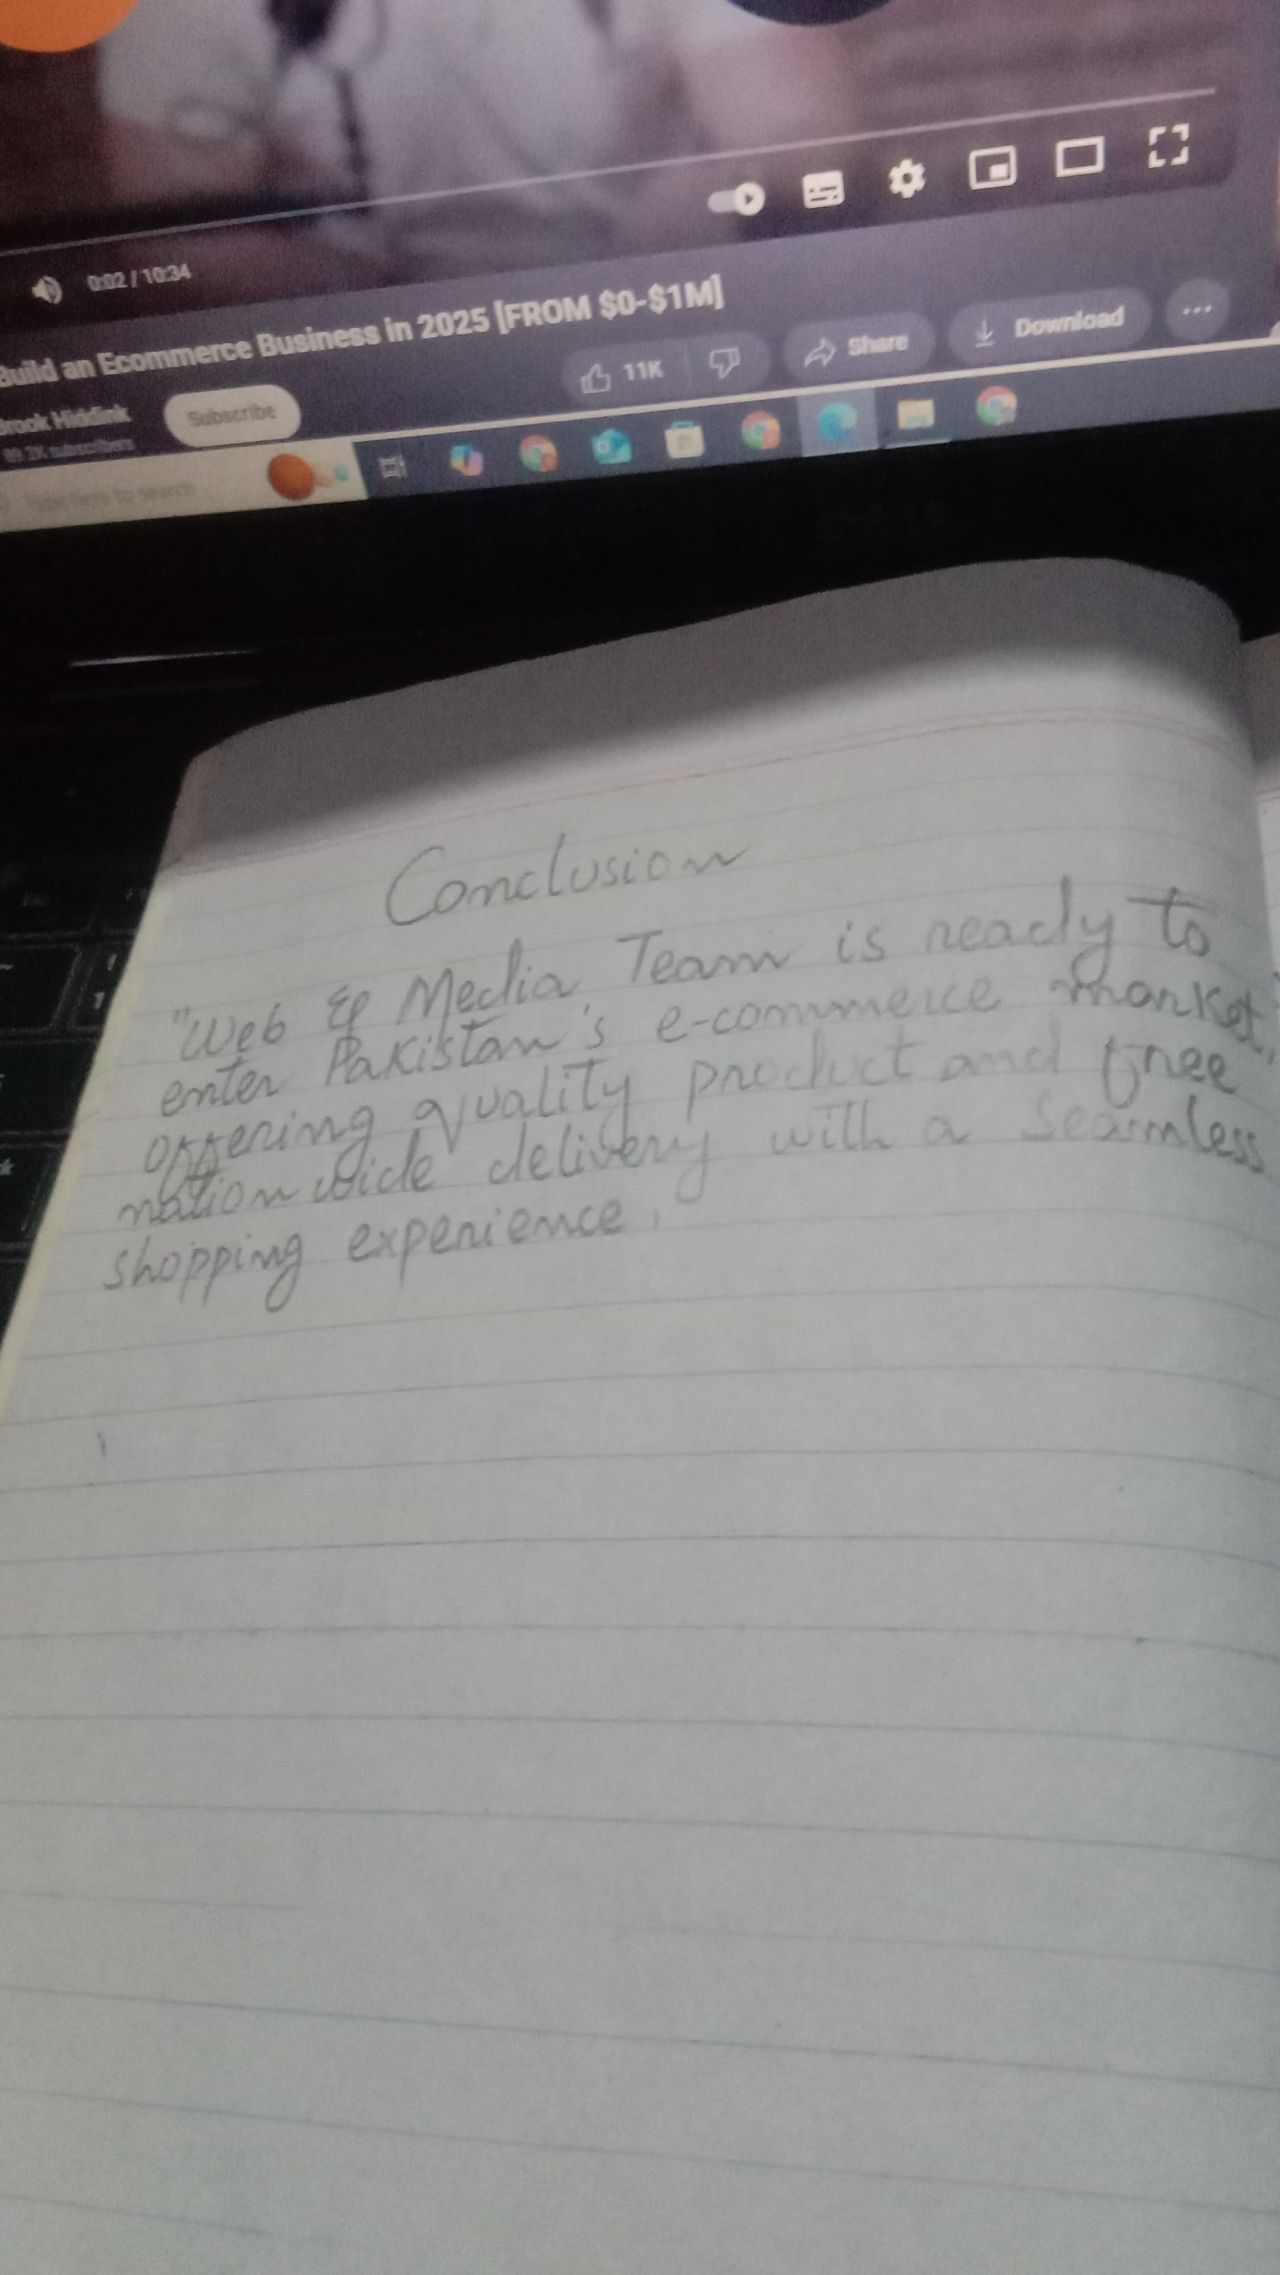 0:02 / 10:34
Build an Ecommerce Business in 2025 [FROM $0-$1M]
Brook Hiddink
Subscribe
11K
Share
Download
subscribers
Type here to search
Conclusion
"Web & Media Team is ready to
enter Pakistan's e-commerce market,
offering quality product and free
nation wide delivery with a seamless
shopping experience.